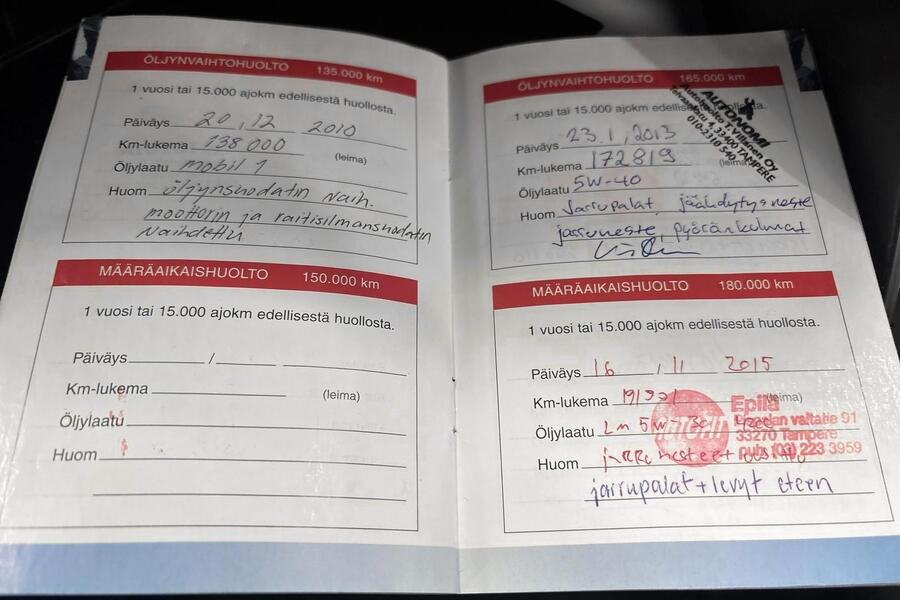 ÖLJYNVAIHTOHUOLTO 135.000 km
1 vuosi tai 15.000 ajokm edellisestä huollosta.
Päiväys 20.12 2010
Km-lukema 138 000 (leima)
Öljylaatu mobil 1
Huom öljynsuodatin vaih.
moottorin ja raitisilmansuodatin
vaihdettu
MÄÄRÄAIKAISHUOLTO 150.000 km
1 vuosi tai 15.000 ajokm edellisestä huollosta.
Päiväys /
Km-lukema (leima)
Öljylaatu
Huom
ÖLJYNVAIHTOHUOLTO 165.000 km
1 vuosi tai 15.000 ajokm edellisestä huollosta.
Päiväys 23.1.2013
Km-lukema 172819 (leima)
Öljylaatu 5W-40
Huom Jarrupalat, jäähdytysneste
jarruneste, pyöränkulmat
AUTONOMI
Autohuolto Oy
33400 TAMPERE
010-2310 540
MÄÄRÄAIKAISHUOLTO 180.000 km
1 vuosi tai 15.000 ajokm edellisestä huollosta.
Päiväys 16 / 11 2015
Km-lukema (leima)
Öljylaatu Lm 5W-30
Huom
jarrupalat + levyt eteen
Epilä
valtatie 91
33270 Tampere
puh. (03) 223 3959